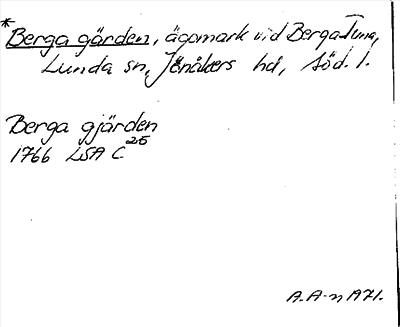 *Berga gärden, ägomark vid Berga-Tuna,
Lunda sn, Jönåkers hd, Söd. l.
Berga gjärden
1766 LSA C 25
A.A-n 1971.